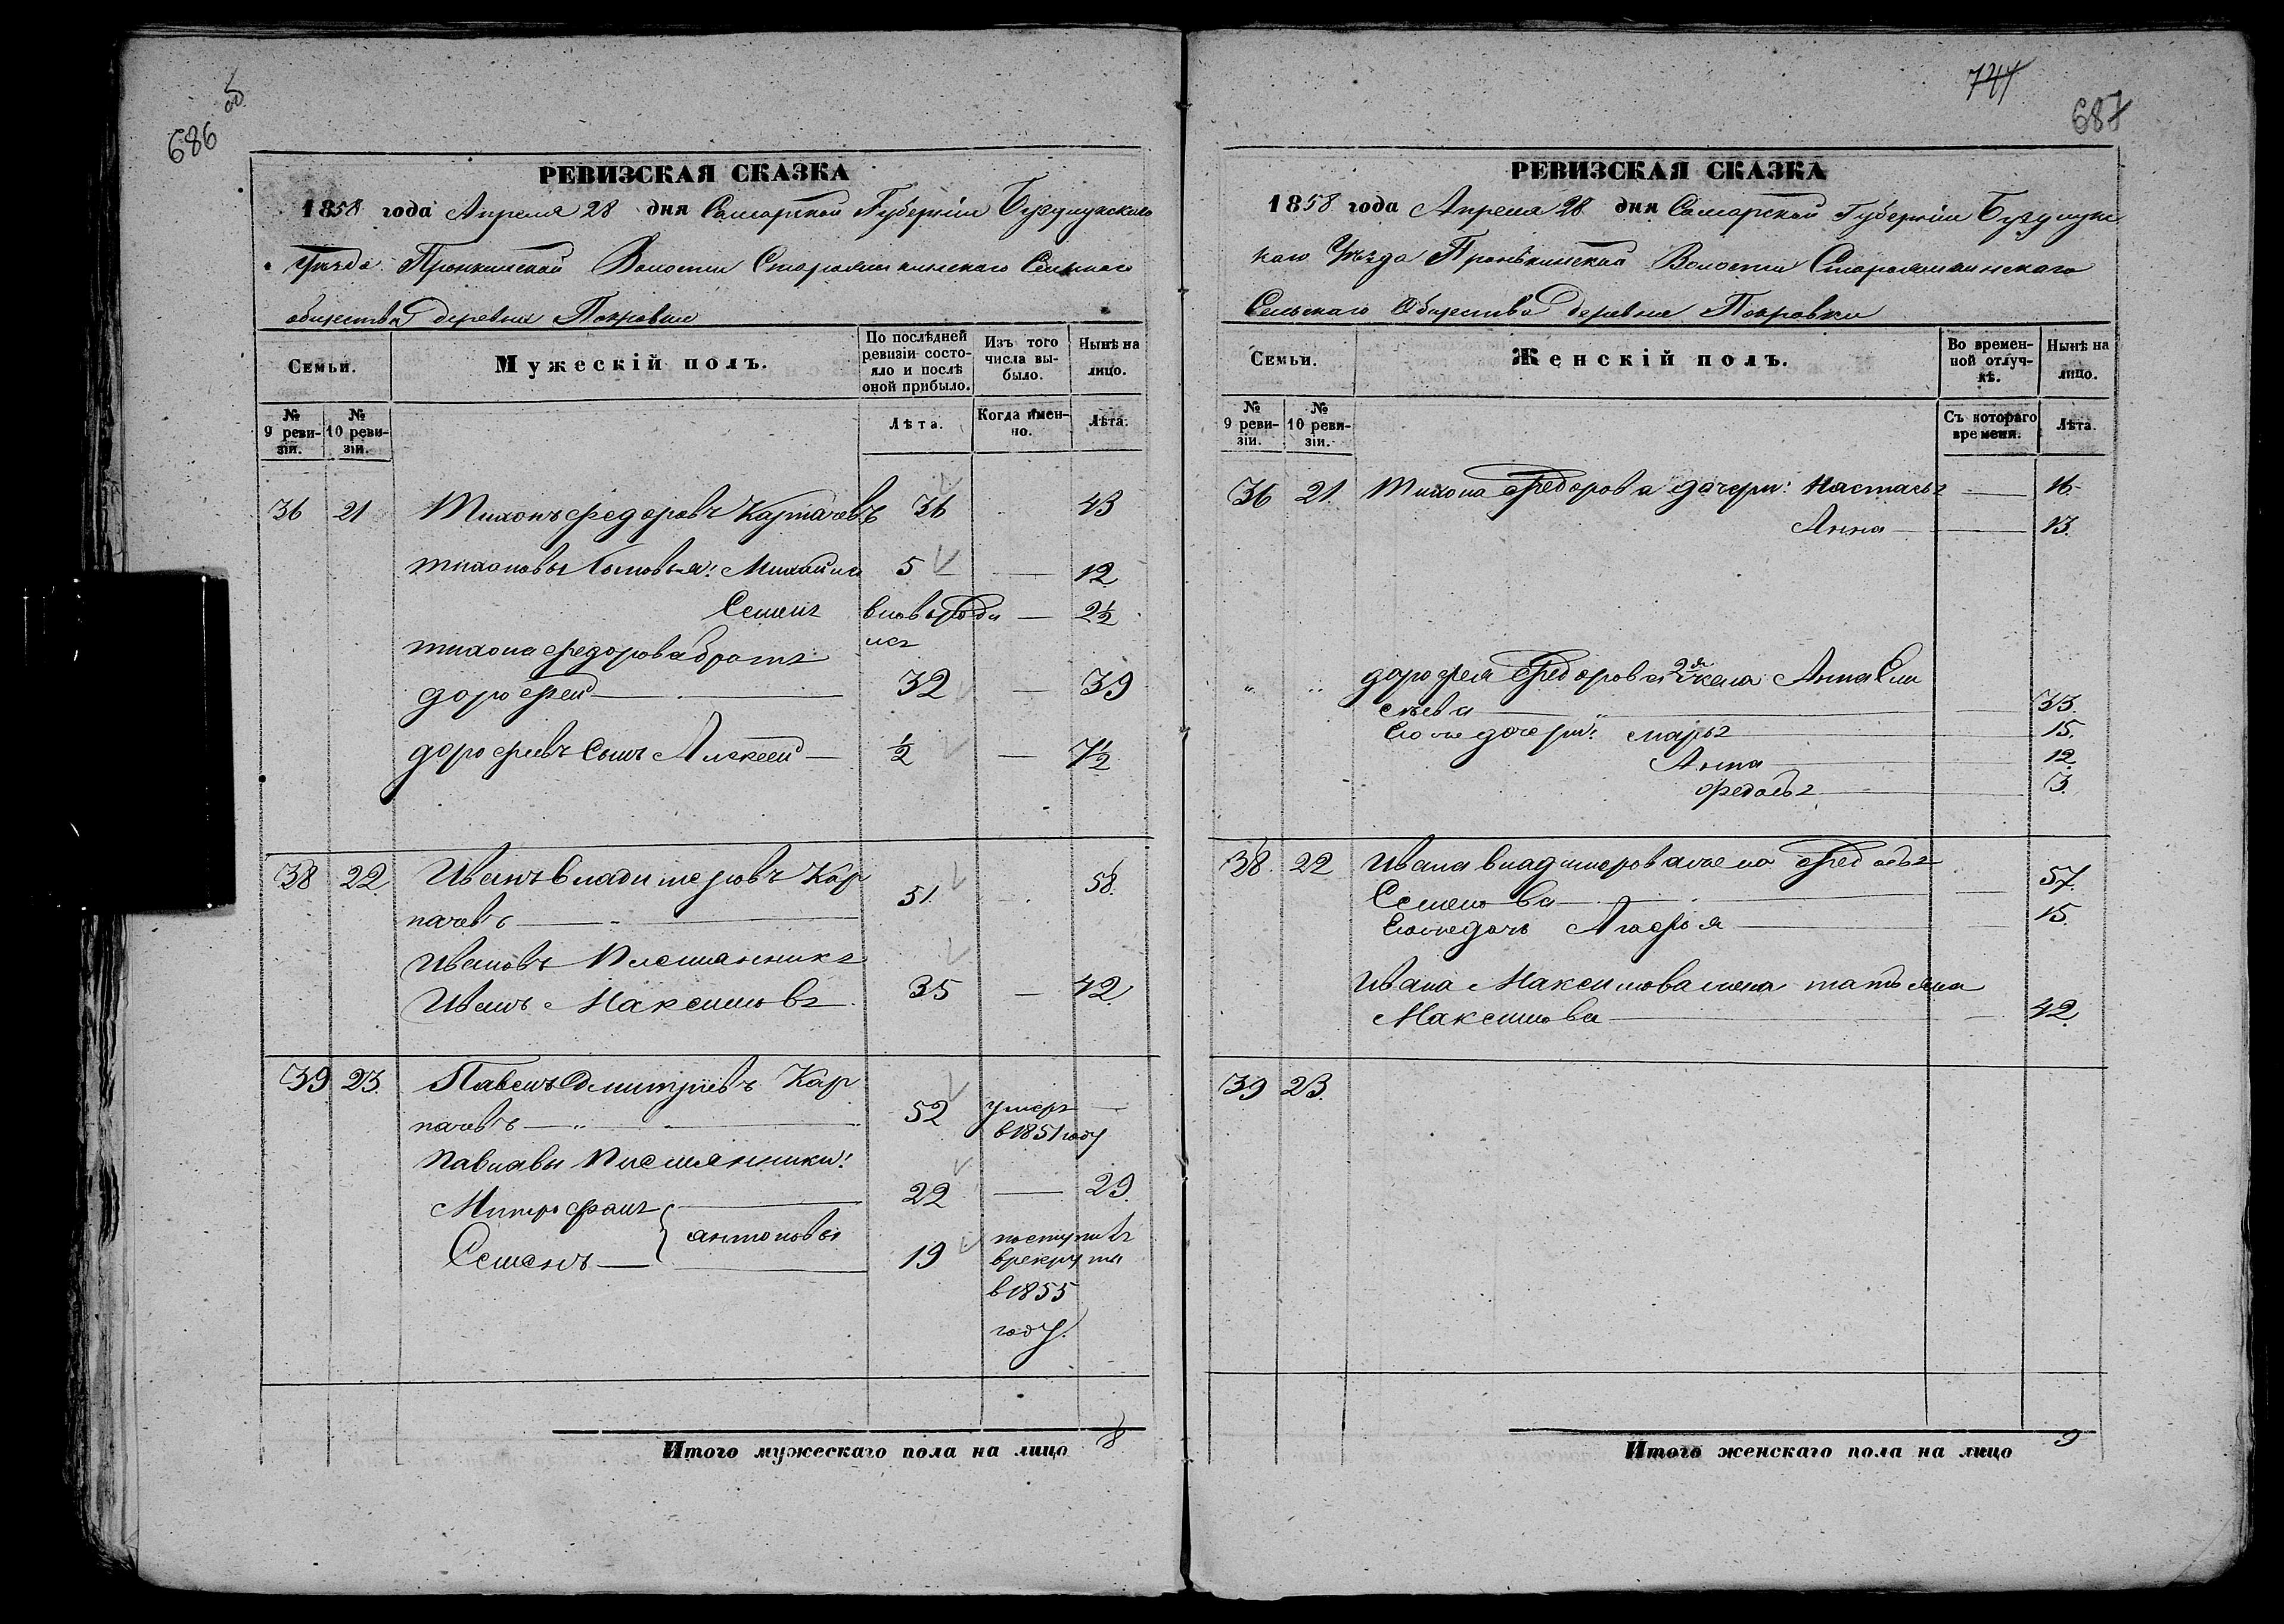 686
РЕВИЗСКАЯ СКАЗКА
1858 года Апреля 28 дня Самарской Губернiи Бузулукскаго
Уѣзда Пронкинской Волости Сельскаго
общества деревни Покровки
Семьи.
Мужескiй полъ.
По послѣдней ревизiи состо-
яло и послѣ оной прибыло.
Изъ того числа вы-
было.
Нынѣ на лицо.
№ 9 реви-
зiи.
№ 10 реви-
зiи.
Лѣта.
Когда имен-
но.
Лѣта.
36 21 Тихонъ Федоровъ Карпачевъ 36 43
Тихоновы Сыновья: Михайла 5 — 12
Семенъ вновь роди — 2½
лсъ
Тихона Федорова братъ
Дорофей — 32 — 39
Дорофеевъ Сынъ Алексей — ½ — 7½
38 22 Иванъ Владимеровъ Кар
пачевъ — 51. 58.
Ивановъ Племянникъ
Иванъ Максимовъ 35 — 42
39 23. Павелъ Дмитриевъ Кар
пачевъ — 52 умеръ —
в 1851 году
Павлавы Племянники:
Митрофанъ — 22 — 29.
Семенъ — } антоновы 19 поступилъ
в рекруты
в 1855
году.
Итого мужескаго пола на лицо 8
744
687
РЕВИЗСКАЯ СКАЗКА
1858 года Апреля 28 дня Самарской Губернiи Бузулук
каго Уѣзда Пронькинской Волости
Сельскаго Общества деревни Покровки
Семьи.
Женскiй полъ.
Во времен-
ной отлуч-
кѣ.
Нынѣ на лицо.
№ 9 реви-
зiи.
№ 10 реви-
зiи.
Съ котораго времени.
Лѣта.
36 21. Тихона Федорова дочери: Настасья — 16.
Анна — 13.
" " Дорофея Федорова 2я жена Анна Ели
сѣева — 33.
Его же дочери: Марья — 15.
Анна — 12.
Федосья — 3.
38. 22 Ивана Владимерова жена Федосья
Семенова — 57.
Его же дочь Агафья — 15.
Ивана Максимова жена Татьяна
Максимова — 42.
39 23.
Итого женскаго пола на лицо 9